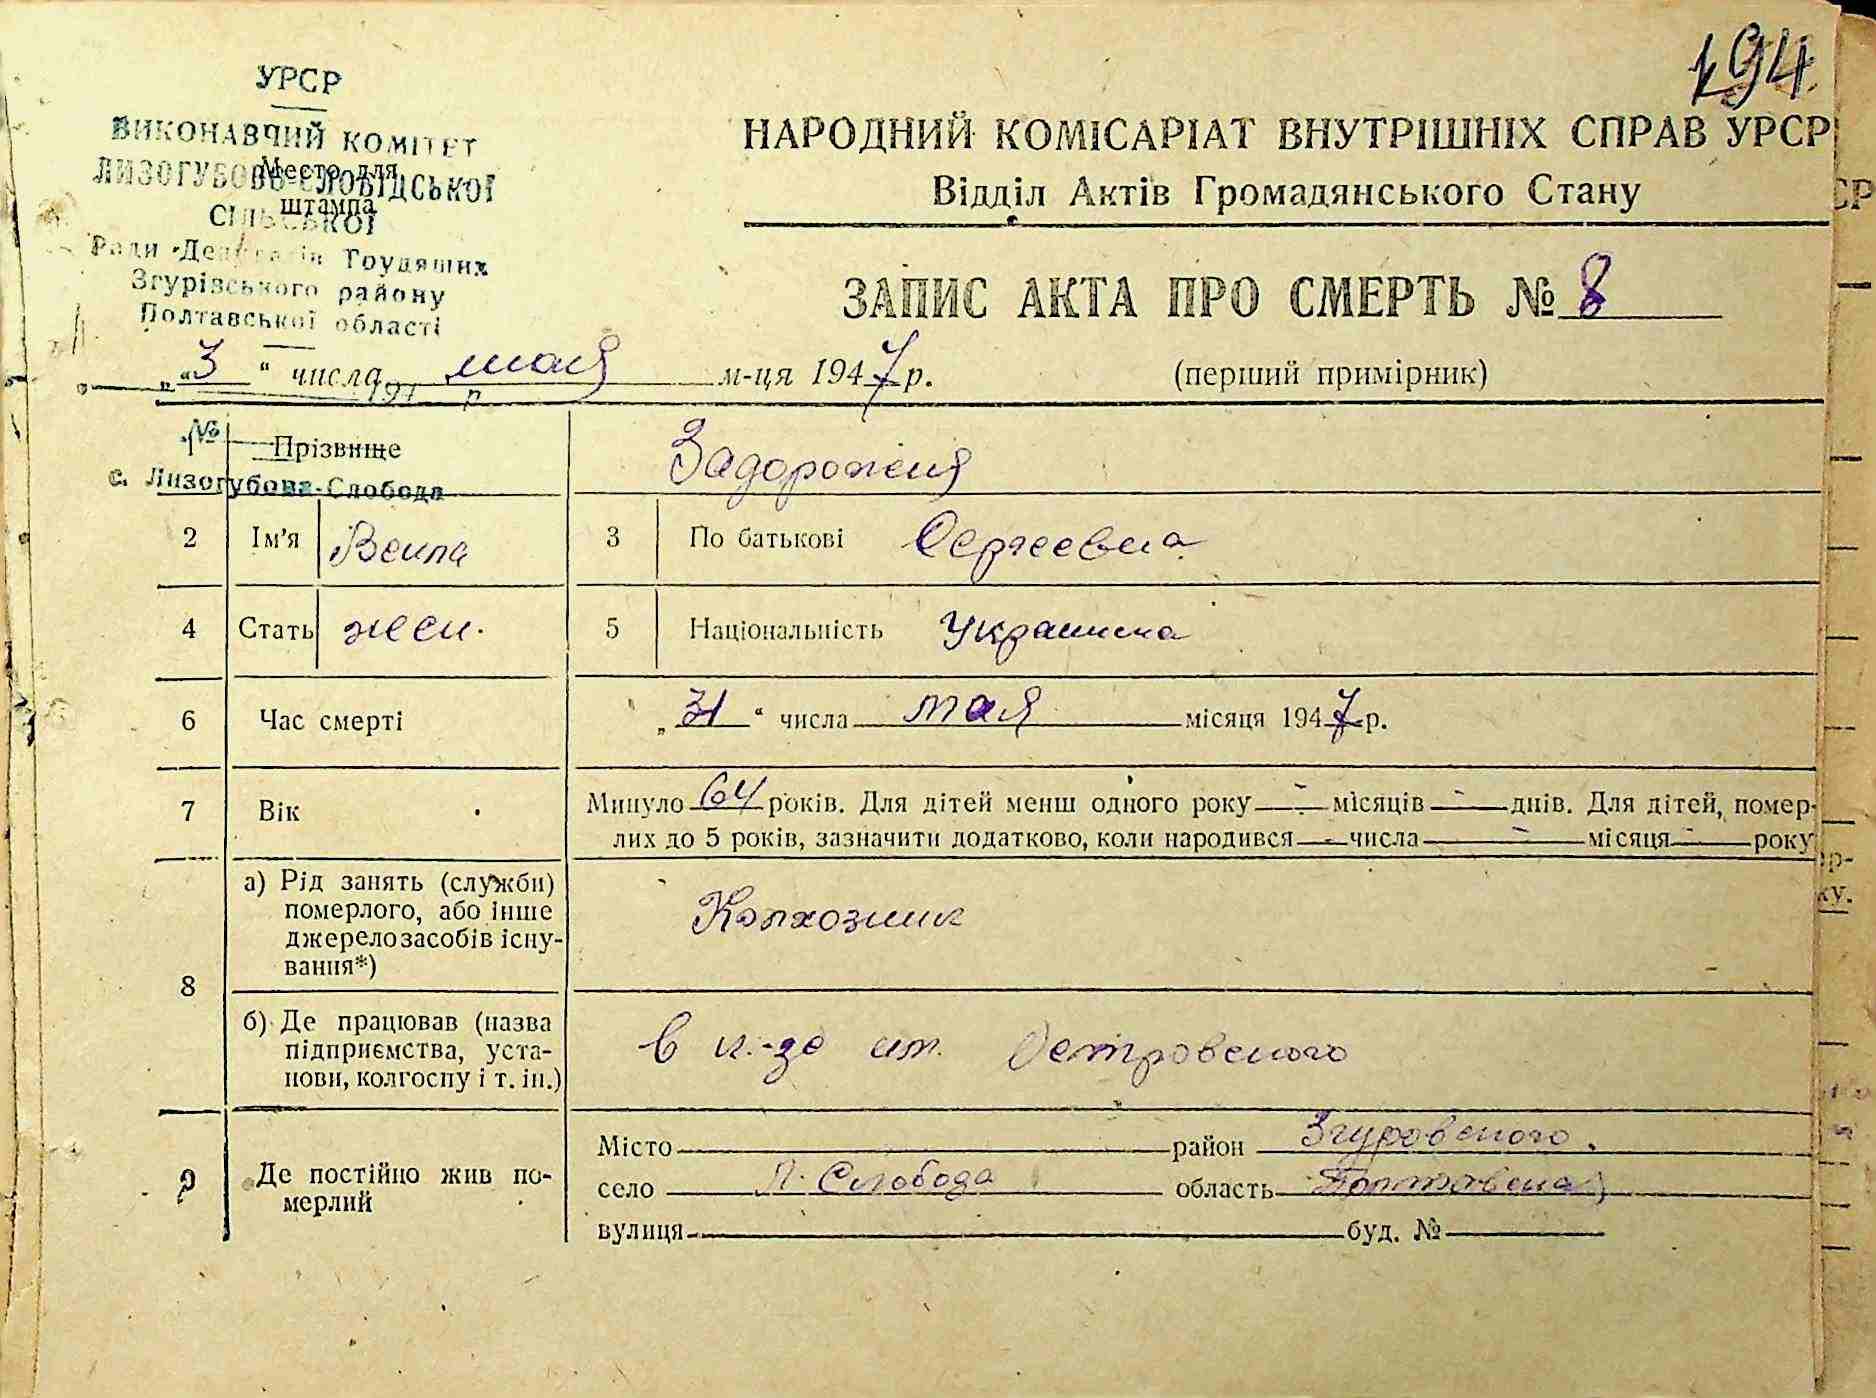 194
УРСР
ВИКОНАВЧИЙ КОМІТЕТ
ЛИЗОГУБОВЪ-СЛОБІДСЬКОЇ
Место для
штампа
СІЛЬСЬКОЇ
Ради Депутатів Трудящих
Згурівського району
Полтавської області
НАРОДНИЙ КОМІСАРІАТ ВНУТРІШНІХ СПРАВ УРСР
Відділ Актів Громадянського Стану
ЗАПИС АКТА ПРО СМЕРТЬ № 8
„3“ числа мая м-ця 1947 р. (перший примірник)
194 р
№ Прізвище Задорожня
с. Лизогубова-Слобода
2 Ім'я 3 По батькові Сергеевна
4 Стать жен. 5 Національність Украинка
6 Час смерті „31“ числа мая місяця 1947 р.
7 Вік Минуло 64 років. Для дітей менш одного року - місяців - днів. Для дітей, помер-
лих до 5 років, зазначити додатково, коли народився - числа - місяця - року
8 а) Рід занять (служби)
померлого, або інше
джерело засобів існу-
вання*)
Колхозник
б) Де працював (назва
підприємства, уста-
нови, колгоспу і т. ін.)
в к-зе им. Островского
9 Де постійно жив по-
мерлий
Місто район Згуровского
село Л. Слобода область Полтавская
вулиця буд. №